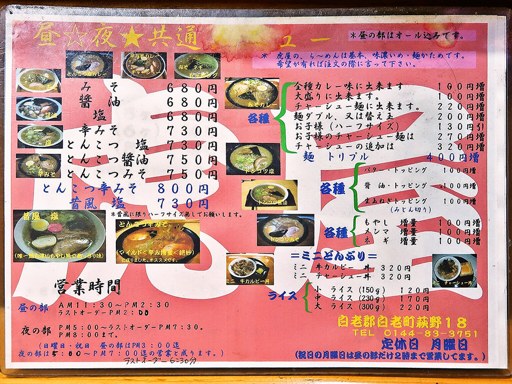 昼☆夜★共通
ュー
＊昼の部はオール込みです。
＊夜屋の、ら～めんは基本、味濃いめ・麺かためです。
希望が有れば注文の際に言って下さい。
みそ 680円
醤油 680円
塩 680円
辛みそ 730円
とんこつ 塩 730円
とんこつ醤油 750円
とんこつみそ 750円
とんこつ辛みそ 800円
昔風 塩 730円
各種
全種カレー味に出来ます 100円増
大盛りに出来ます。 100円増
チャーシュー麺に出来ます。 220円増
麺ダブル、又は替え玉 200円増
お子様(ハーフサイズ) 130円引
お子様のチャーシュー麺は 270円増
チャーシューの追加は 320円増
麺 トリプル 400円増
各種
バター・トッピング 100円増
醤油・トッピング 100円増
(みじん切り)
各種
もやし 増量 100円増
メンマ 増量 100円増
ネギ 増量 100円増
昔風 塩
とんこつ辛みそ
＝ミニどんぶり＝
ミニ 牛カルビー丼 320円
ミニ チャーシュー丼 320円
ライス
小 ライス(150g) 120円
中 ライス(230g) 170円
大 ライス(300g) 220円
営業時間
昼の部 AM11:30～PM2:30
ラストオーダーPM2:00
夜の部 PM5:00～ラストオーダーPM7:30、
PM8:00まで。
(日曜日・祝日 昼の部はPM3:00迄
夜の部は5:00～PM7:00迄の営業と成ります。)
ラストオーダー6:30分
白老郡白老町萩野18
TEL 0144-83-3751
定休日 月曜日
(祝日の月曜日は昼の部だけ2時まで営業してます。)